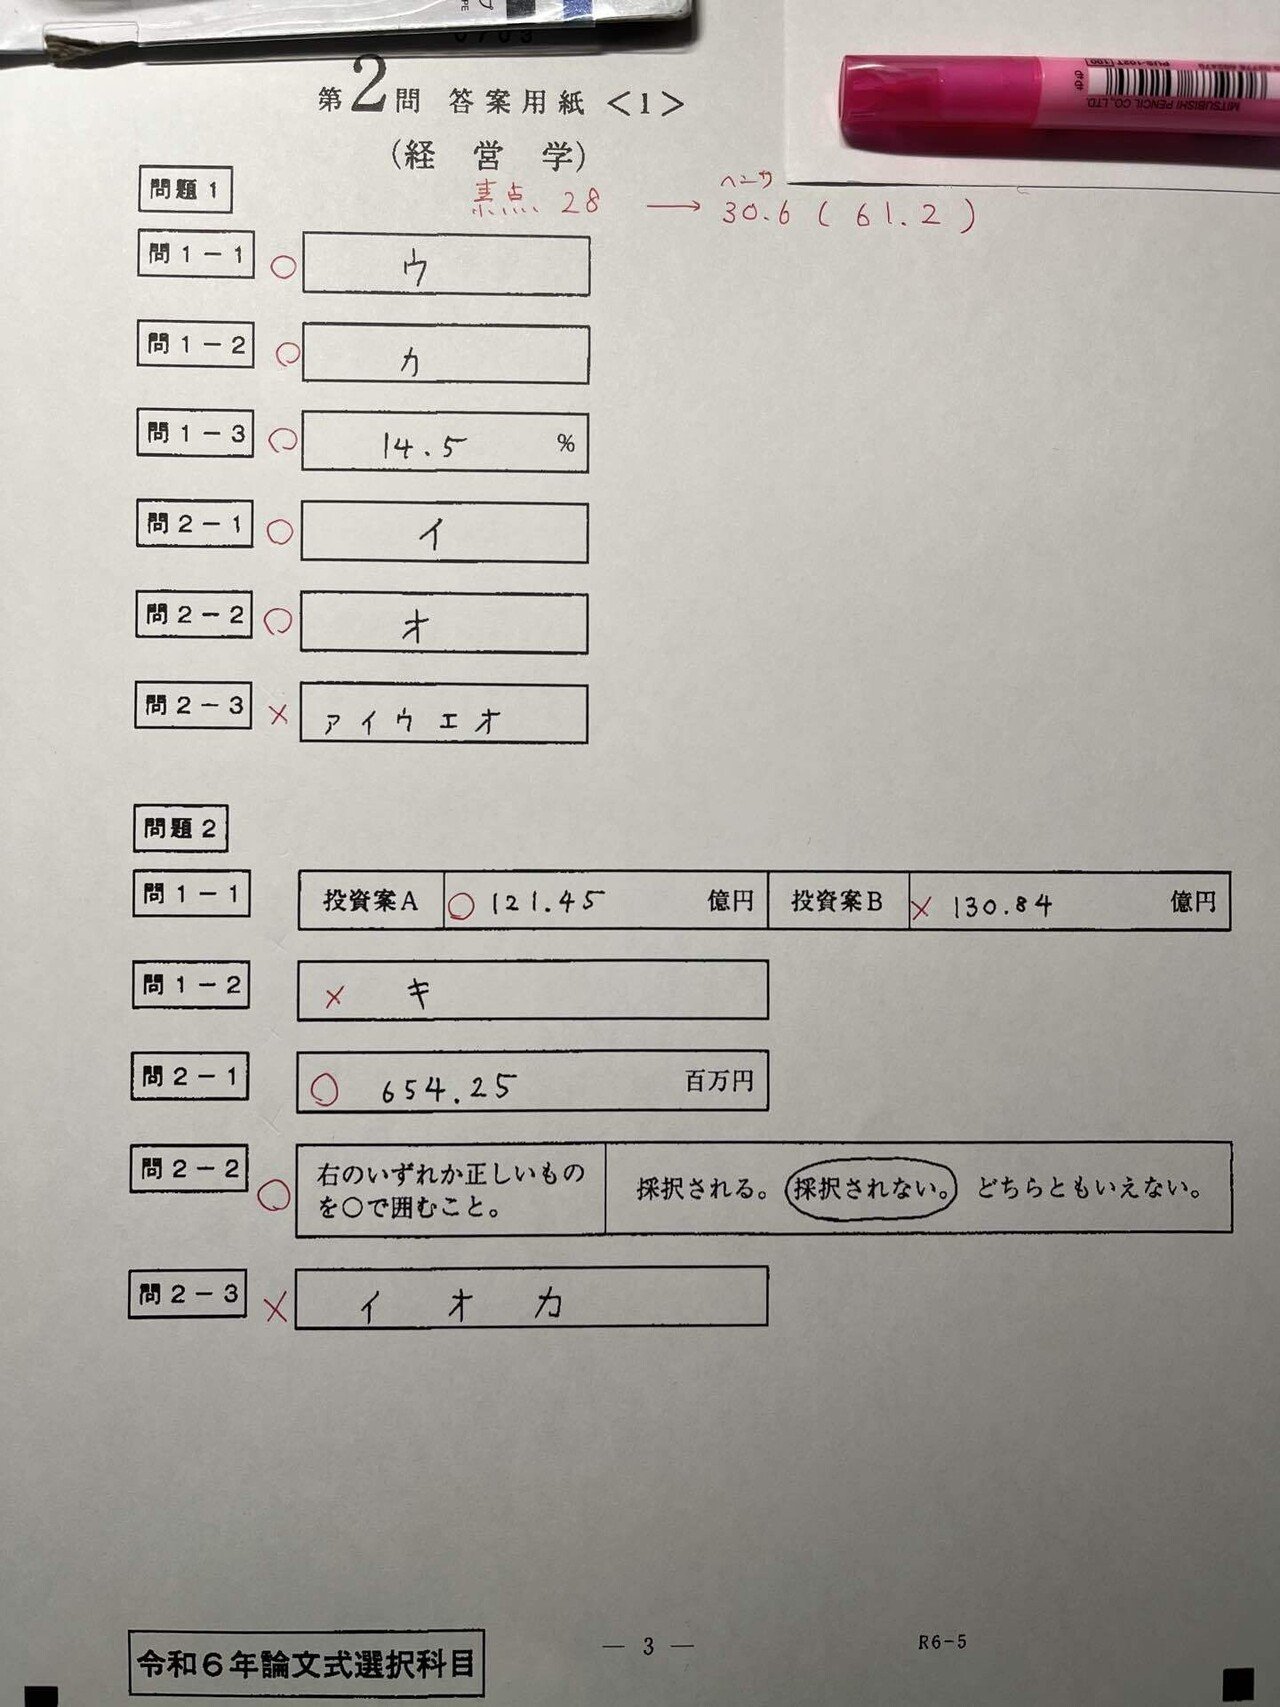 第2問 答案用紙<1>
(経営学)
素点、28 → ヘンサ 30.6 (61.2)
問題1
問1-1 ○ ウ
問1-2 ○ カ
問1-3 ○ 14.5 %
問2-1 ○ イ
問2-2 ○ オ
問2-3 × アイウエオ
問題2
問1-1 投資案A ○ 121.45 億円 投資案B × 130.84 億円
問1-2 × キ
問2-1 ○ 654.25 百万円
問2-2 ○ 右のいずれか正しいもの
を○で囲むこと。
採択される。 採択されない。 どちらともいえない。
問2-3 × イ オ カ
令和6年論文式選択科目
― 3 ―
R6-5
MITSUBISHI PENCIL CO., LTD.